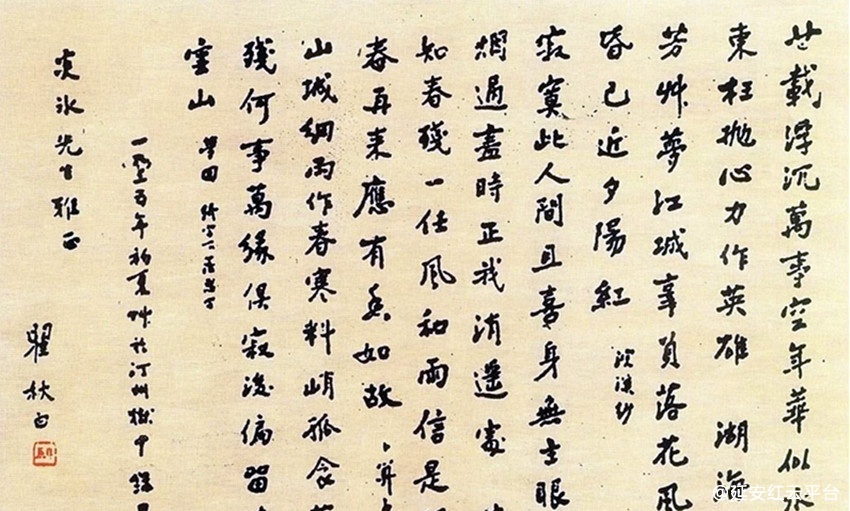 廿載浮沉萬事空年華似水
東枉拋心力作英雄 湖海
芳艸夢江城辜負落花風
昏已近夕陽紅 浣溪紗
寂寞此人間且喜身無主眼
烟過盡時正我消遥處
知春殘一任風和雨信是
春再来應有香如故 卜算
山城細雨作春寒料峭孤衾
殘何事萬緣俱寂後偏留
雲山 夢回
一九三五年初夏艸於汀州獄中 錄
炎冰先生雅正
瞿秋白
@延安红云平台